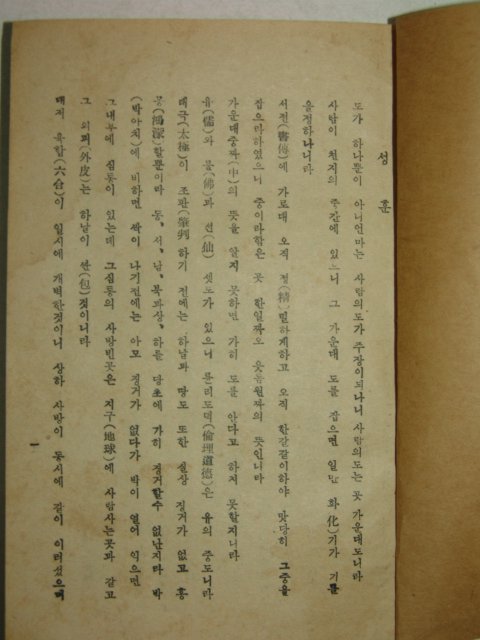 성훈
도가 하나뿐이 아니언마는 사람의도가 주장이되나니 사람의도는 곳 가운대도니라
사람이 천지의 중간에 있느니 그 가운대 도를 잡으면 일만 화(化)기가 기를
율정하나니라
서전(書傳)에 가로대 오직 정(精)밀하게하고 오직 한갈같이하야 맞당히 그중을
잡으라하였으니 중이라함은 곳 한일짜오 웃듬원짜의 뜻인니라
가운대중짜(中)의 뜻을 알지 못하면 가히 도를 안다고 하지 못할지니라
유(儒)와 불(佛)과 선(仙) 셋도가 있으니 륜리도덕(倫理道德)은 유의 중도니라
태극(太極)이 조판(肇判)하기 전에는 하날과 땅도 또한 실상 징거가 없고 홍
몽(鴻濛)할뿐이라 동, 서, 남, 북과상, 하를 당초에 가히 징거할수 없난지라 박
(박아치)에 비하면 싹이 나기전에는 아모 징거가 없다가 박이 열어 익으면
그내부에 심통이 있는데 그심통의 사방빈곳은 지구(地球)에 사람사는곳과 같고
그 외피(外皮)는 하날이 싼(包)것이니라
대저 육합(六合)이 일시에 개벽한것이니 상하 사방이 동시에 같이 이러섰으며
一